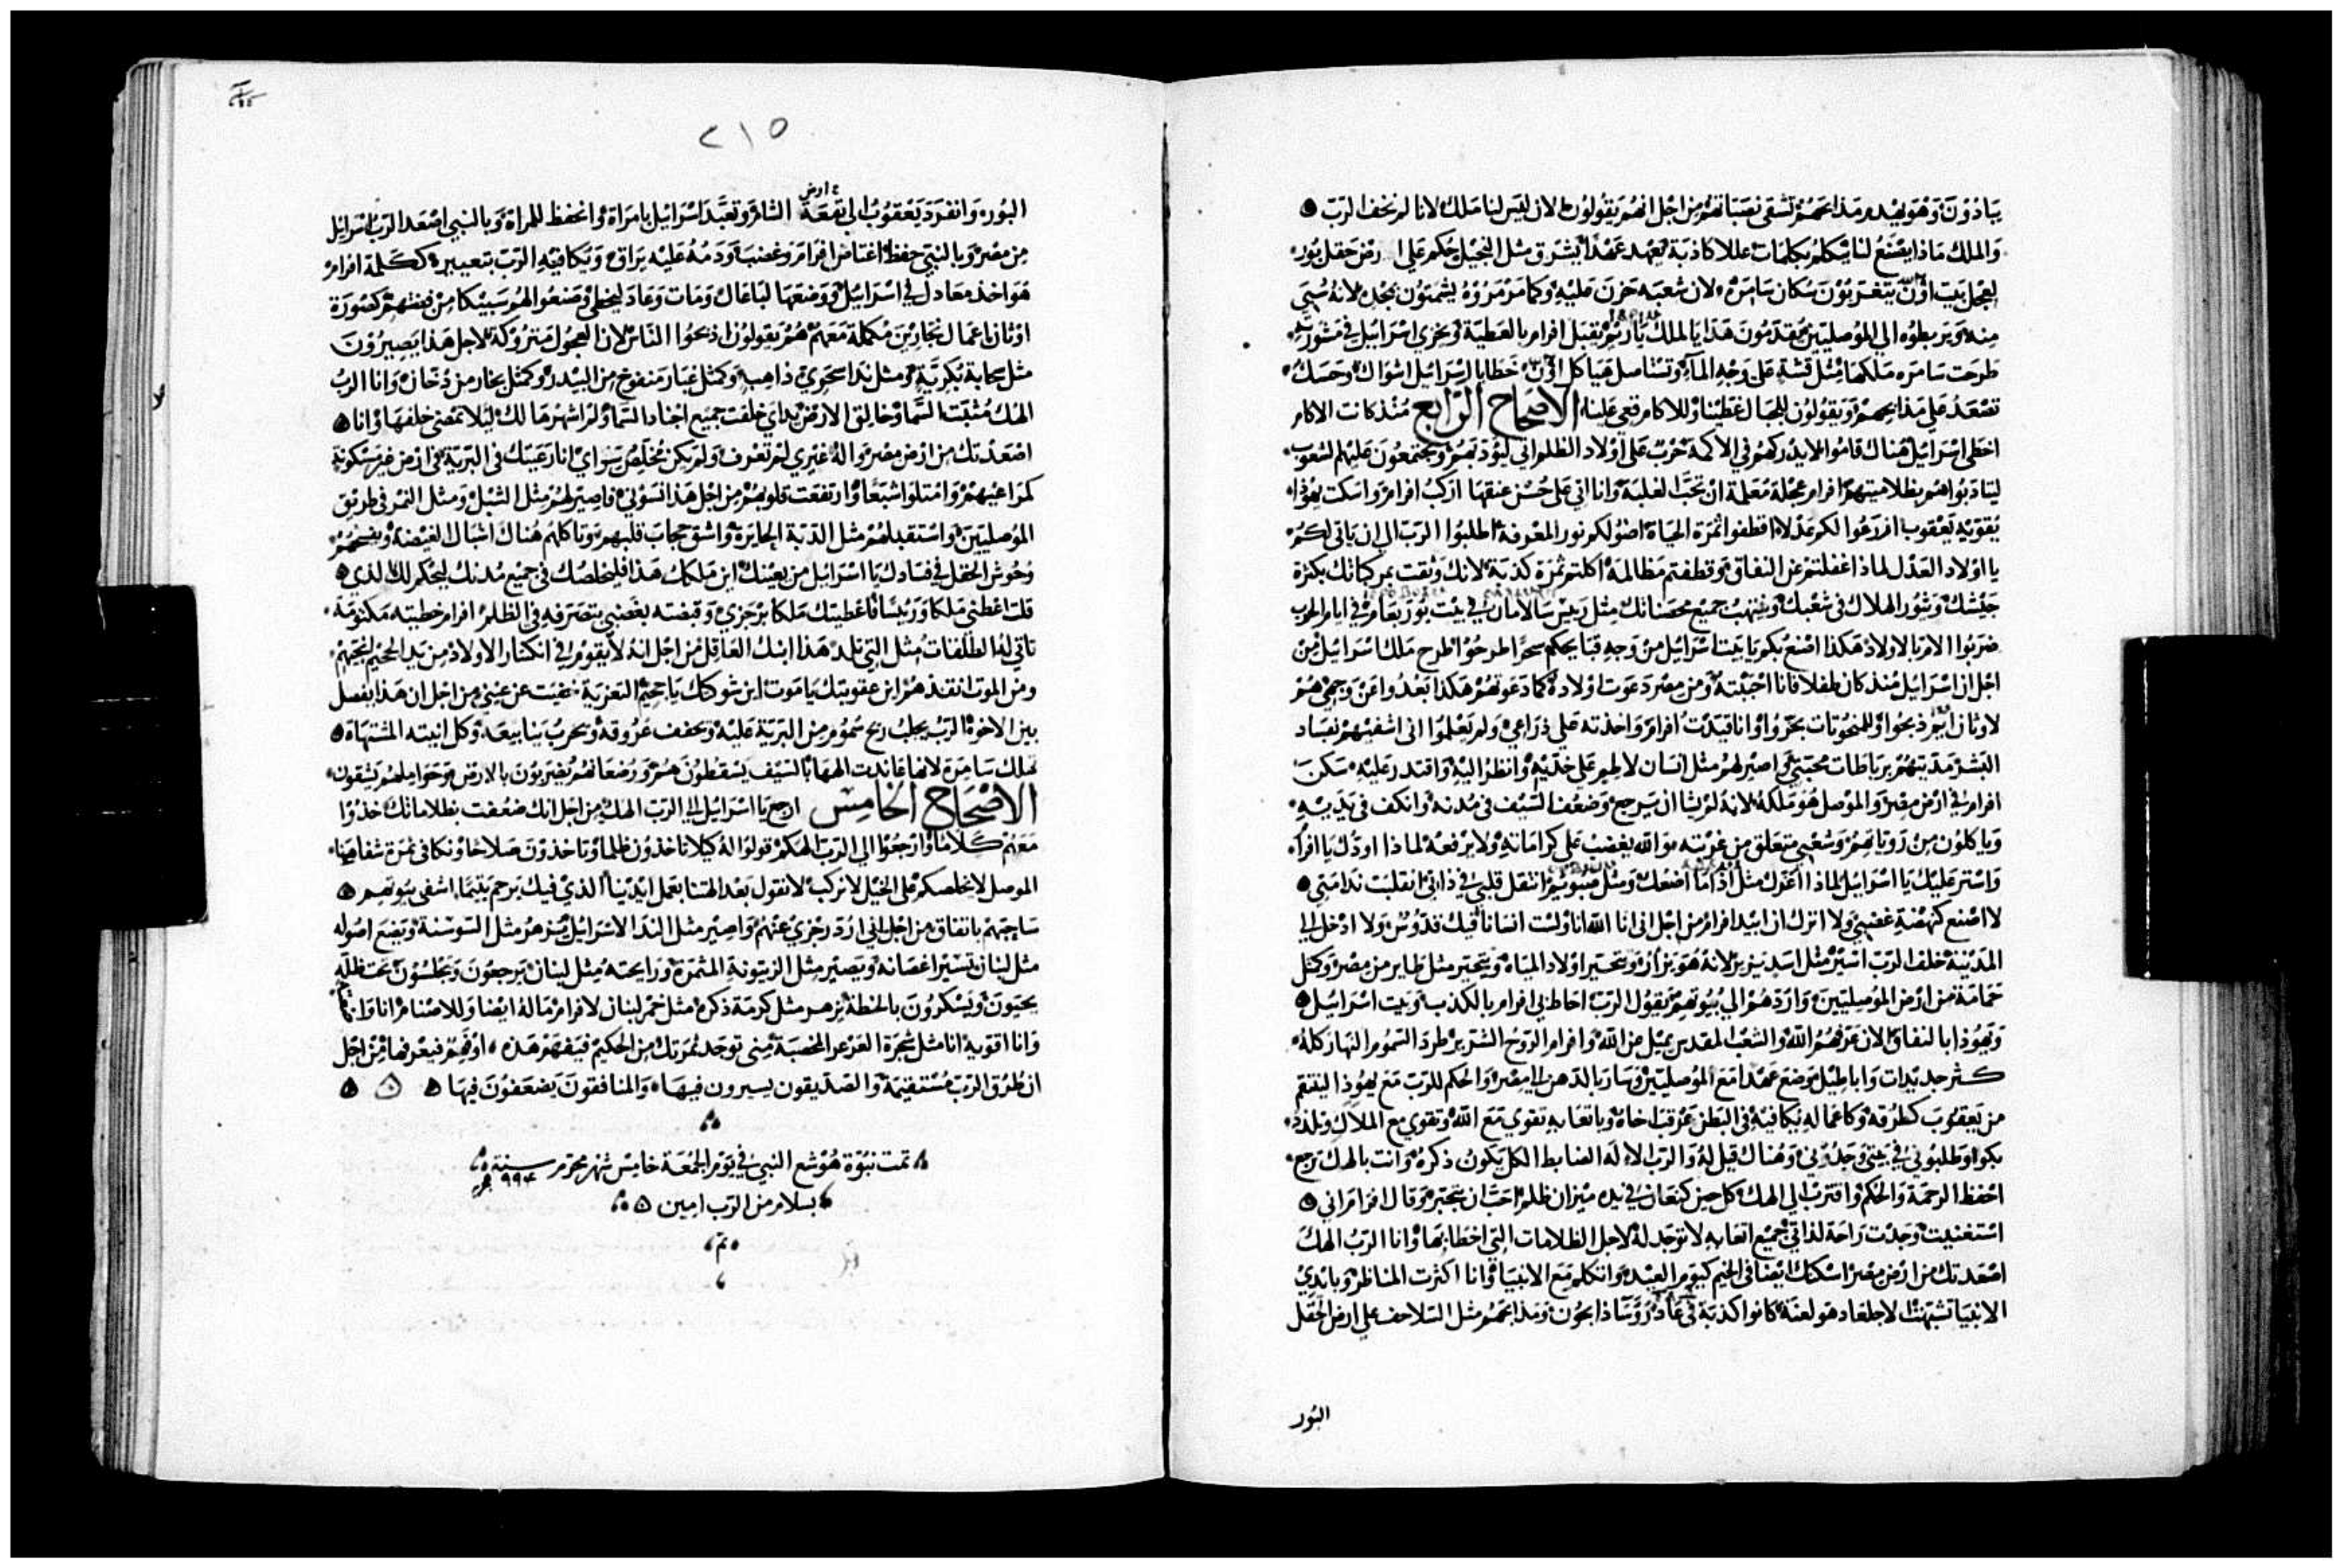 يبادون وهو يهدم مذابحهم تشقى نصباتهم من اجل انهم يقولون لان ليس لنا ملك لانا لم نخف الرب
والملك ماذا يصنع لنا يتكلم بكلمات عللا كاذبة يعهد عهدا يشرق مثل النجيل حكم على ارض حقل بور
لعجل بيت اون يتغربون سكان سامره لان شعبه حزن عليه وكما مرمروه يشمتون بمجده لانه سبى
منه ويربطوه الى الموصليين يقدمون هدايا للملك ياريم يقبل افرام بالعطية ويخزي اسراييل في مشورته
طرحت سامره ملكها مثل قشة على وجه المآء وتستاصل هياكل اون خطايا اسراييل اشواك وحسك
تصعد على مذابحهم ويقولون للجبال غطينا وللاكام قعي علينا الاصحاح الرابع منذ كانت الاكام
اخطى اسراييل هناك قاموا لا يدركهم في الاكمة حرب على اولاد الظلم اتى ليؤدبهم ويجتمعون عليهم الشعوب
ليتادبوا هم بظلاميتهم افرام عجلة معلمة ان تحب الغلبة وانا اتي على حسن عنقها اركب افرام واسكت يهوذا
يقويه يعقوب ازرعوا لكم عدلا اقطفوا ثمرة الحياة اضوا لكم نور المعرفة اطلبوا الرب الى ان ياتي لكم
يا اولاد العدل لماذا غفلتم عن النفاق وقطفتم مظالمه اكلتم ثمرة كذبة لانك وثقت بمركباتك بكثرة
جيشك ويثور الهلاك في شعبك وينتهب جميع محصناتك مثل رييس سالامان في بيت يوربعام في ايام الحرب
ضربوا الام بالاولاد هكذا اصنع بكم يا بيت اسراييل من وجه قبايحكم سحرا طرحوا طرح ملك اسراييل من
اجل ان اسراييل منذ كان طفلا فانا احببته ومن مصر دعوت اولاده كما دعوتهم هكذا بعدوا عن وجهي هم
لاوثان بعم ذبحوا وللمنحوتات بخروا وانا قيدت افرام واخذته على ذراعي ولم يعلموا اني اشفيهم بفساد
البشر مديتهم برباطات محبتي واصير لهم مثل انسان لاطم على خديه وانظر اليه واقتدر عليه سكن
افرام في ارض مصر والموصل هو ملكه لانه لم يشا ان يرجع وضعف السيف في مدنه وانكف في يديه
وياكلون من روياتهم وشعبي متعلق من غربته والله يغضب على كراماته ولا يرفعه لماذا اودك يا افرام
واستر عليك يا اسراييل لماذا اغزك مثل اداما اضعك ومثل صبوييم انتقل قلبي في ذاتي انقلبت ندامتي
لا اصنع كنهضة غضبي ولا اترك ان ابيد افرام من اجل اني انا الله انا ولست انسانا فيك قدوس ولا ادخل الى
المدينة خلف الرب اسير مثل اسد يزير لانه هو يزار ويتحير اولاد المياه ويتحير مثل طاير من مصر وكمثل
حمامة من ارض الموصليين واردهم الى بيوتهم يقول الرب احاط بي افرام بالكذب وبيت اسراييل
ويهوذا بالنفاق الان عرفهم الله والشعب المقدس يميل من الله وافرام الروح الشرير طرد السموم النهار كله
كثر جديدات واباطيل موضع عهدا مع الموصليين وسار بالدهن الى مصر والحكم للرب مع يهوذا لينتقم
من يعقوب كطرقه وكاعماله يكافيه في البطن عرقب اخاه وباتعابه تقوي مع الله وتقوي مع الملاك وتلدد
بكوا وطلبوني في بيتي وجدوني وهناك قيل له والرب الاله الضابط الكل يكون ذكره وانت بالهك ترجع
احفظ الرحمة والحكم واقترب الى الهك كل حين كنعان في يده ميزان ظلم احب ان يتجبر وقال افرام اني
استغنيت وجدت راحة لذاتي جميع اتعابه لا توجد له لاجل الظلامات التي اخطا بها وانا الرب الهك
اصعدتك من ارض مصر اسكنك ايضا في الخيم كيوم العيد واتكلم مع الانبيا وانا اكثرت المناظر وبايدي
الانبيا تشبهت لاجلعاد هو لعنة كانوا كذبة في عاد روسا ذابحون ومذابحهم مثل السلاحف على ارض الحقل
البور
٢١٥
البور وانفرد يعقوب الى بقعة ارض الشام وتعبد اسراييل بامراة وانحفظ للمراة وبالنبي اصعد الرب اسراييل
من مصر وبالنبي حفظ اغتاض افرام وغضب ودمه عليه يراق ويكافيه الرب بتعييره ككلمة افرام
هو اخذ معادل في اسراييل ووضعها لباعال ومات وعاد ليخطى وصنعوا لهم سبيكا من فضتهم كصورة
اوثان اعمال نجارين مكملة معهم هم يقولون اذبحوا الناس لان العجول متروكة لاجل هذا يصيرون
مثل سحابة بكرية ومثل ندا سحري ذاهب وكمثل غبار منفوخ من البيدر وكمثل بخار من دخان وانا الرب
الهك مثبت السما وخالق الارض يداي خلقت جميع اجناد السما ولم اشهرها لك ليلا تمضي خلفها وانا
اصعدتك من ارض مصر واله غيري لم تعرف ولم يكن مخلص سواي انا رعيتك في البرية في ارض غير مسكونة
كمراعيهم وامتلوا شبعا وارتفعت قلوبهم من اجل هذا نسوني فاصير لهم مثل الشبل ومثل النمر في طريق
الموصليين واستقبلهم مثل الدبة الحايرة واشق حجاب قلبهم وتاكلهم هناك اشبال الغيضة ويفسخهم
وحوش الحقل في فسادك يا اسراييل من يعينك اين ملكك هذا فليخلصك في جميع مدنك ليحكم لك الذي
قلت اعطني ملكا وربيسا فاعطيتك ملكا برجزي وقبضته بغضبي بتصرفه في الظلم افرام خطيته مكتومة
تاتي له الطلقات مثل التي تلد هذا ابنك العاقل من اجل انه لا يقوم في انكسار الاولاد من يد الجحيم انجيهم
ومن الموت انقذهم اين عقوبتك يا موت اين شوكتك يا جحيم التعزية خفيت عن عيني من اجل ان هذا يفصل
بين الاخوة الرب يجلب ريح سموم من البرية عليه وتجفف عروقه وتخرب ينابيعه وكل انيته المشتهاة
تهلك سامرة لانها عاندت الهها بالسيف يسقطون هم ورضعانهم يضربون بالارض وحواملهم يشقون
الاصحاح الخامس ارجع يا اسراييل الى الرب الهك من اجل انك ضعفت بظلاماتك خذوا
معهم كلاما وارجعوا الى الرب الهكم قولوا له كيلا تاخذون ظلما وتاخذون صلاحا ونكافي ثمرة شفاهنا
الموصل لا يخلصكم على الخيل لا نركب لا نقول بعد الهتنا بعمل ايدينا الذي فيك يرحم يتيما اشفي بيوتهم
ساحبهم باتفاق من اجل اني ارد رجزي عنهم واصير مثل الندا لاسراييل يزهر مثل السوسنة ويضع اصوله
مثل لبنان تسير اغصانه ويصير مثل الزيتونة المثمرة ورايحته مثل لبنان يرجعون ويجلسون تحت ظله
يحيون ويسكرون بالحنطة يزهر مثل كرمة ذكره مثل خمر لبنان لافرام ماله ايضا وللاصنام انا واضعته
وانا اقويه انا مثل شجرة العرعر المخصبة مني توجد ثمرتك من الحكيم فيفهم هذه او فهم فيعرفها من اجل
ان طرق الرب مستقيمة والصديقون يسيرون فيها والمنافقون يضعفون فيها
تمت نبوة هوشع النبي في يوم الجمعة خامس شهر محرم سنة ٩٩٤
بسلام من الرب امين
تم